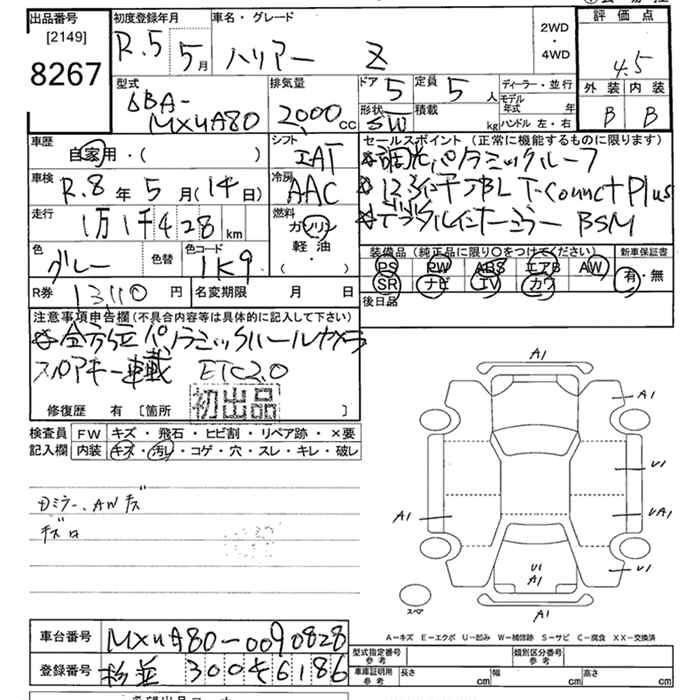 出品番号
[2149]
8267
初度登録年月
R.5 5月
車名・グレード
ハリアー Z
2WD
・
4WD
評価点
4.5
外装 内装
B B
型式
6BA-
MXUA80
排気量
2000 cc
ドア 5
定員 5 人
形状 SW
積載 kg
ディーラー・並行
モデル年式 年
ハンドル 左・右
車歴
自家用・( )
シフト
IAT
セールスポイント (正常に機能するものに限ります)
☆調光パノラミックルーフ
☆12.3インチJBL T-Connect Plus
☆デジタルインナーミラー BSM
車検
R.8年5月(14日)
冷房
AAC
走行
1万1千428km
燃料
ガソリン
軽油
( ・ )
色
グレー
色替
色コード
1K9
装備品 (純正品に限り○をつけてください)
PS PW ABS エアB AW
SR ナビ TV カワ
新車保証書
有・無
R券 13,110円
名変期限 月 日
後日品
注意事項申告欄(不具合内容等は具体的に記入して下さい)
☆全方位パノラミックルールカメラ
スペアキー車載 ETC2.0
修復歴 有 [箇所 ]
初出品
検査員記入欄
FW キズ・飛石・ヒビ割・リペア跡・×要
内装 キズ・汚レ・コゲ・穴・スレ・キレ・破レ
Dミラー、AWキズ
キズ
A1
A1
U1
A1
UA1
U1
A1
U1
A1
スペア
A-キズ E-エクボ U-凹み W-補修跡 S-サビ C-腐食 XX-交換済
車台番号 MXUA80-0090828
登録番号 杉並 300 6186
型式指定番号参考
類別区分番号参考
車庫証明用参考 長さ cm 幅 cm 高さ cm